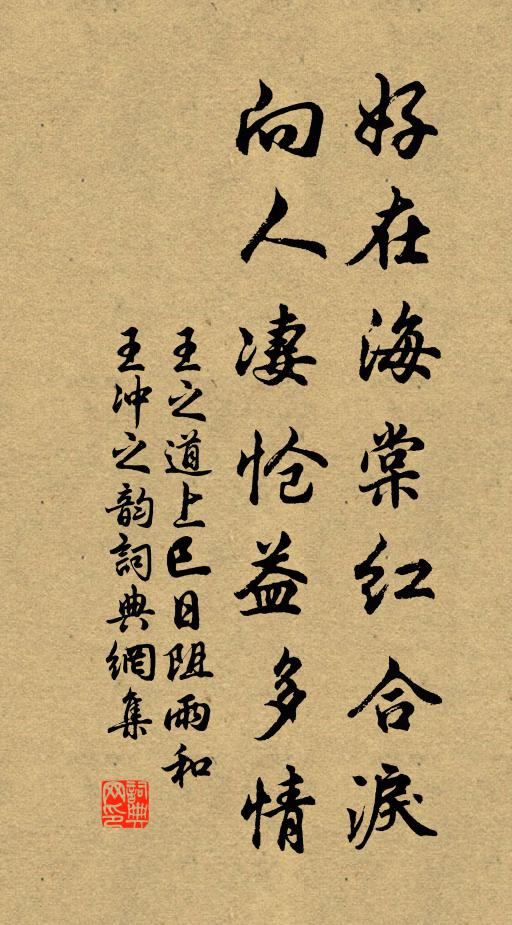 好在海棠红合淚
向人凄怆益多情
王之道上巳日阻雨和
王冲之韵詞典網集
詞典
网印